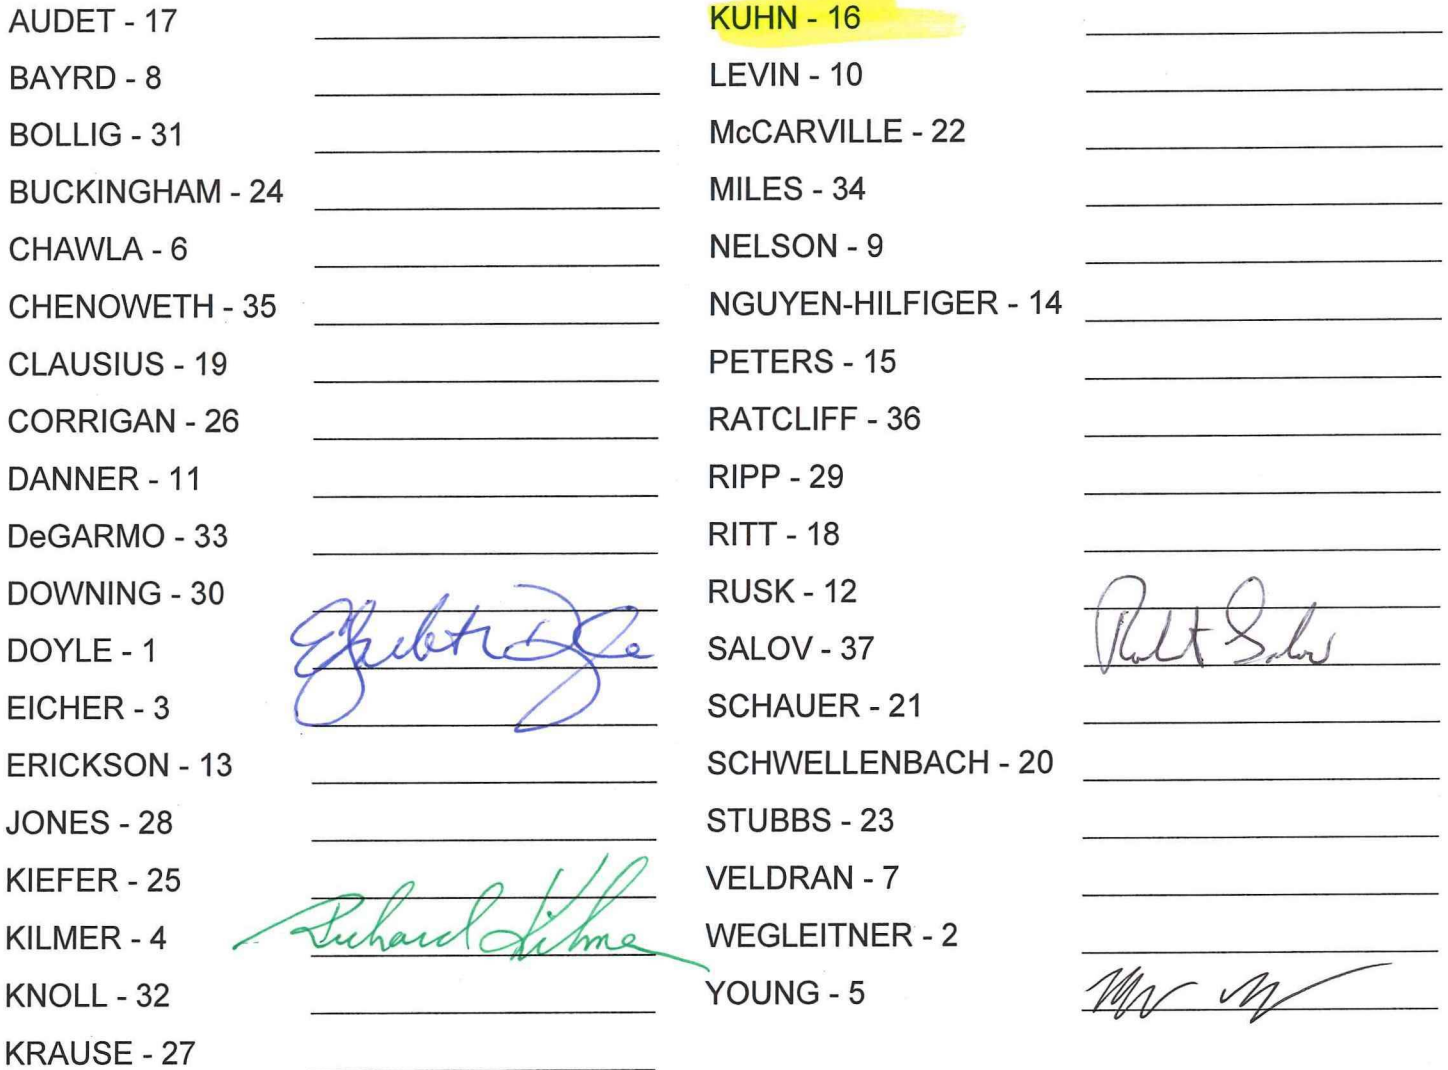 AUDET - 17
BAYRD - 8
BOLLIG - 31
BUCKINGHAM - 24
CHAWLA - 6
CHENOWETH - 35
CLAUSIUS - 19
CORRIGAN - 26
DANNER - 11
DeGARMO - 33
DOWNING - 30
DOYLE - 1 Elizabeth Doyle
EICHER - 3
ERICKSON - 13
JONES - 28
KIEFER - 25
KILMER - 4 Richard Kilmer
KNOLL - 32
KRAUSE - 27
KUHN - 16
LEVIN - 10
McCARVILLE - 22
MILES - 34
NELSON - 9
NGUYEN-HILFIGER - 14
PETERS - 15
RATCLIFF - 36
RIPP - 29
RITT - 18
RUSK - 12
SALOV - 37 Robert Salov
SCHAUER - 21
SCHWELLENBACH - 20
STUBBS - 23
VELDRAN - 7
WEGLEITNER - 2
YOUNG - 5